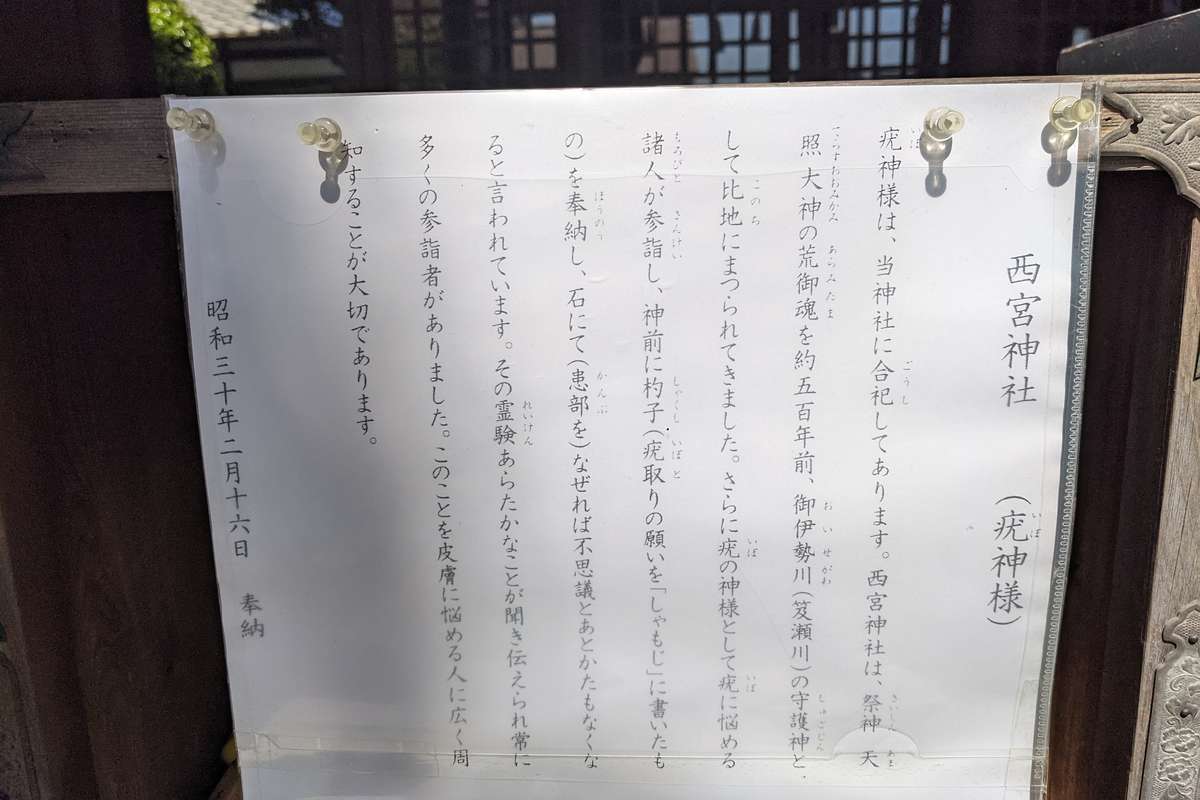 西宮神社　（疣神様）
疣神様は、当神社に合祀してあります。西宮神社は、祭神　天
照大神の荒御魂を約五百年前、御伊勢川（笈瀬川）の守護神と
して比地にまつられてきました。さらに疣の神様として疣に悩める
諸人が参詣し、神前に杓子（疣取りの願いを「しゃもじ」に書いたも
の）を奉納し、石にて（患部を）なぜれば不思議とあとかたもなくな
ると言われています。その霊験あらたかなことが聞き伝えられ常に
多くの参詣者がありました。このことを皮膚に悩める人に広く周
知することが大切であります。
昭和三十年二月十六日　奉納